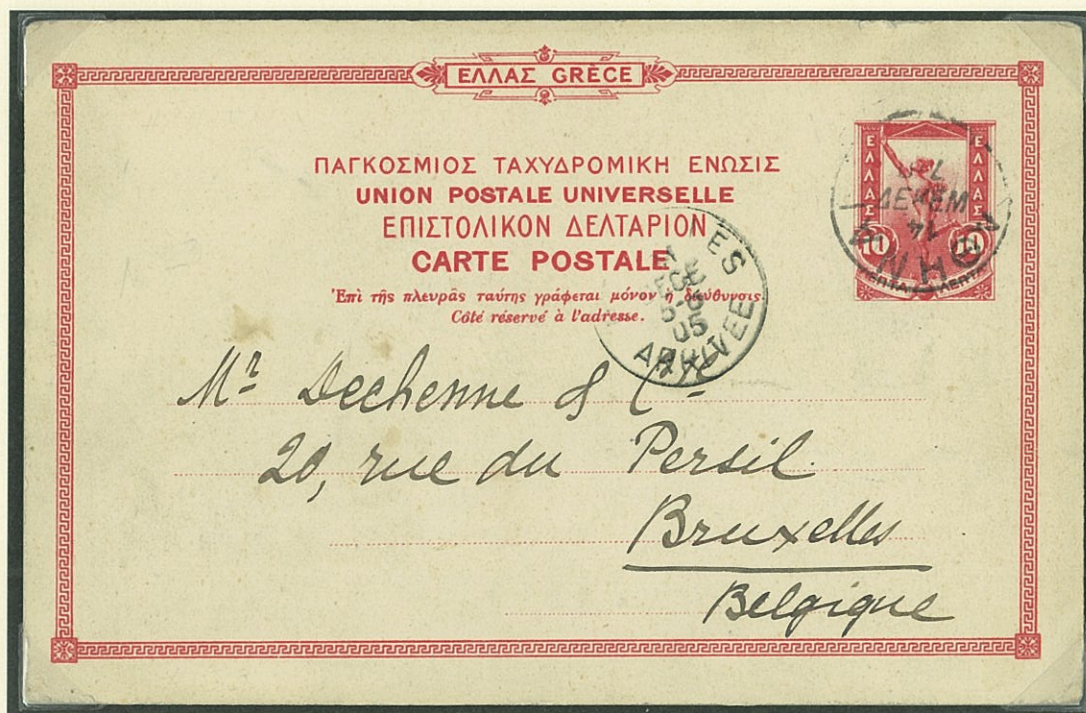 ΕΛΛΑΣ GRÈCE
ΠΑΓΚΟΣΜΙΟΣ ΤΑΧΥΔΡΟΜΙΚΗ ΕΝΩΣΙΣ
UNION POSTALE UNIVERSELLE
ΕΠΙΣΤΟΛΙΚΟΝ ΔΕΛΤΑΡΙΟΝ
CARTE POSTALE
Ἐπὶ τῆς πλευρᾶς ταύτης γράφεται μόνον ἡ διεύθυνσις
Côté réservé à l'adresse.
ΕΛΛΑΣ ΕΛΛΑΣ
10 10
ΛΕΠΤΑ ΛΕΠΤΑ
ΔΕΚΕΜ
14
05
ARRIVEE
Mr Dechenne & Cie
20, rue du Persil
Bruxelles
Belgique